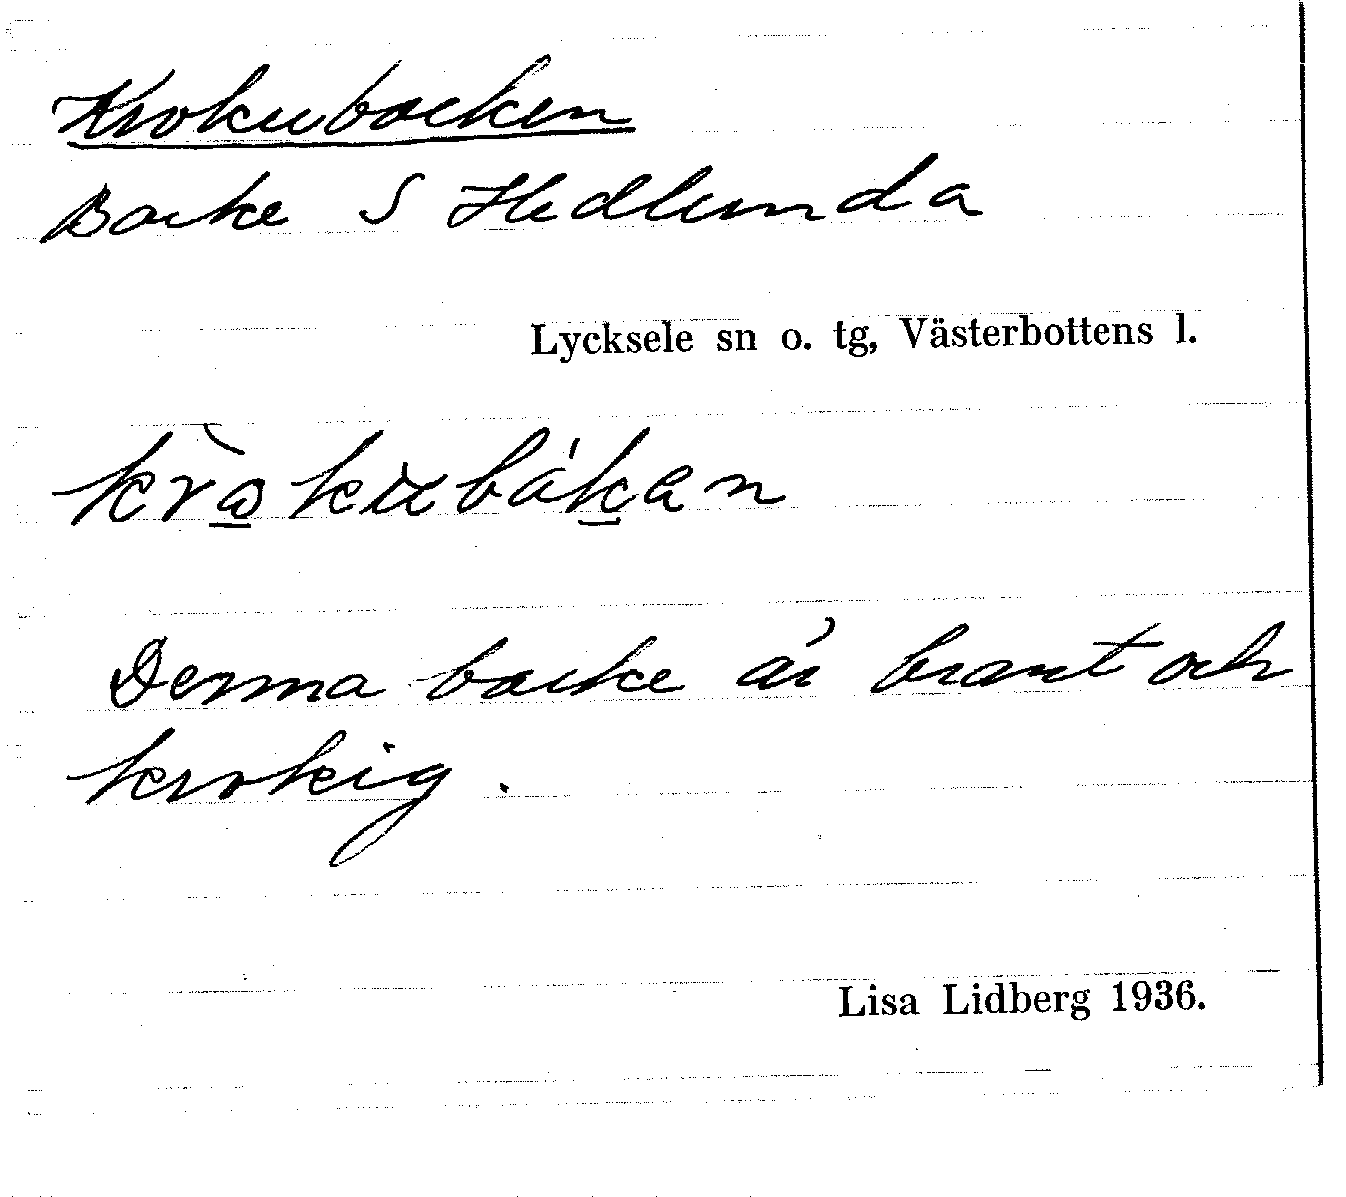 Krokubacken
Backe S Hedlunda
Lycksele sn o. tg, Västerbottens l.
Denna backe är brant och
krokig.
Lisa Lidberg 1936.